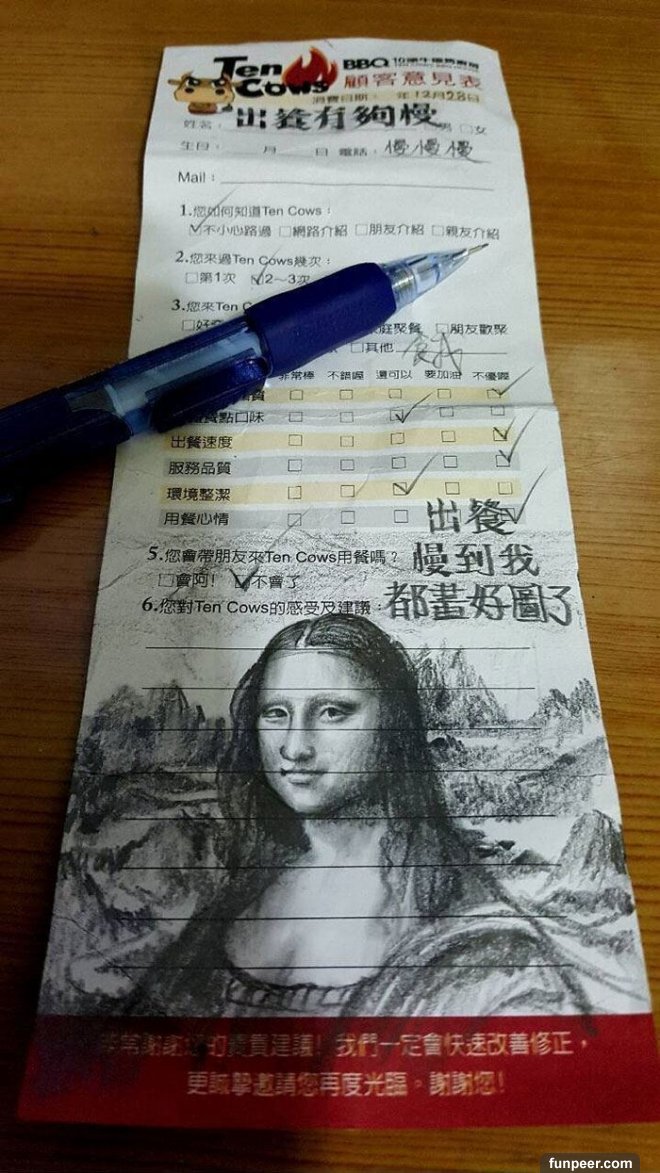 Ten Cows BBQ
顧客意見表
消費日期： 年12月28日
姓名： 出餐有夠慢 男 □女
生日： 月 日 電話： 慢慢慢
Mail：
1.您如何知道Ten Cows：
☑不小心路過 □網路介紹 □朋友介紹 □親友介紹
2.您來過Ten Cows幾次：
□第1次 ☑2～3次
3.您來Ten C
庭聚餐 □朋友歡聚
□其他 餓
非常棒 不錯喔 還可以 要加油 不優喔
點口味
出餐速度
服務品質
環境整潔
用餐心情
出餐
慢到我
都畫好圖了
5.您會帶朋友來Ten Cows用餐嗎？
□會阿！ ☑不會了
6.您對Ten Cows的感受及建議：
非常謝謝您的寶貴建議！我們一定會快速改善修正，
更誠摯邀請您再度光臨。謝謝您！
funpeer.com